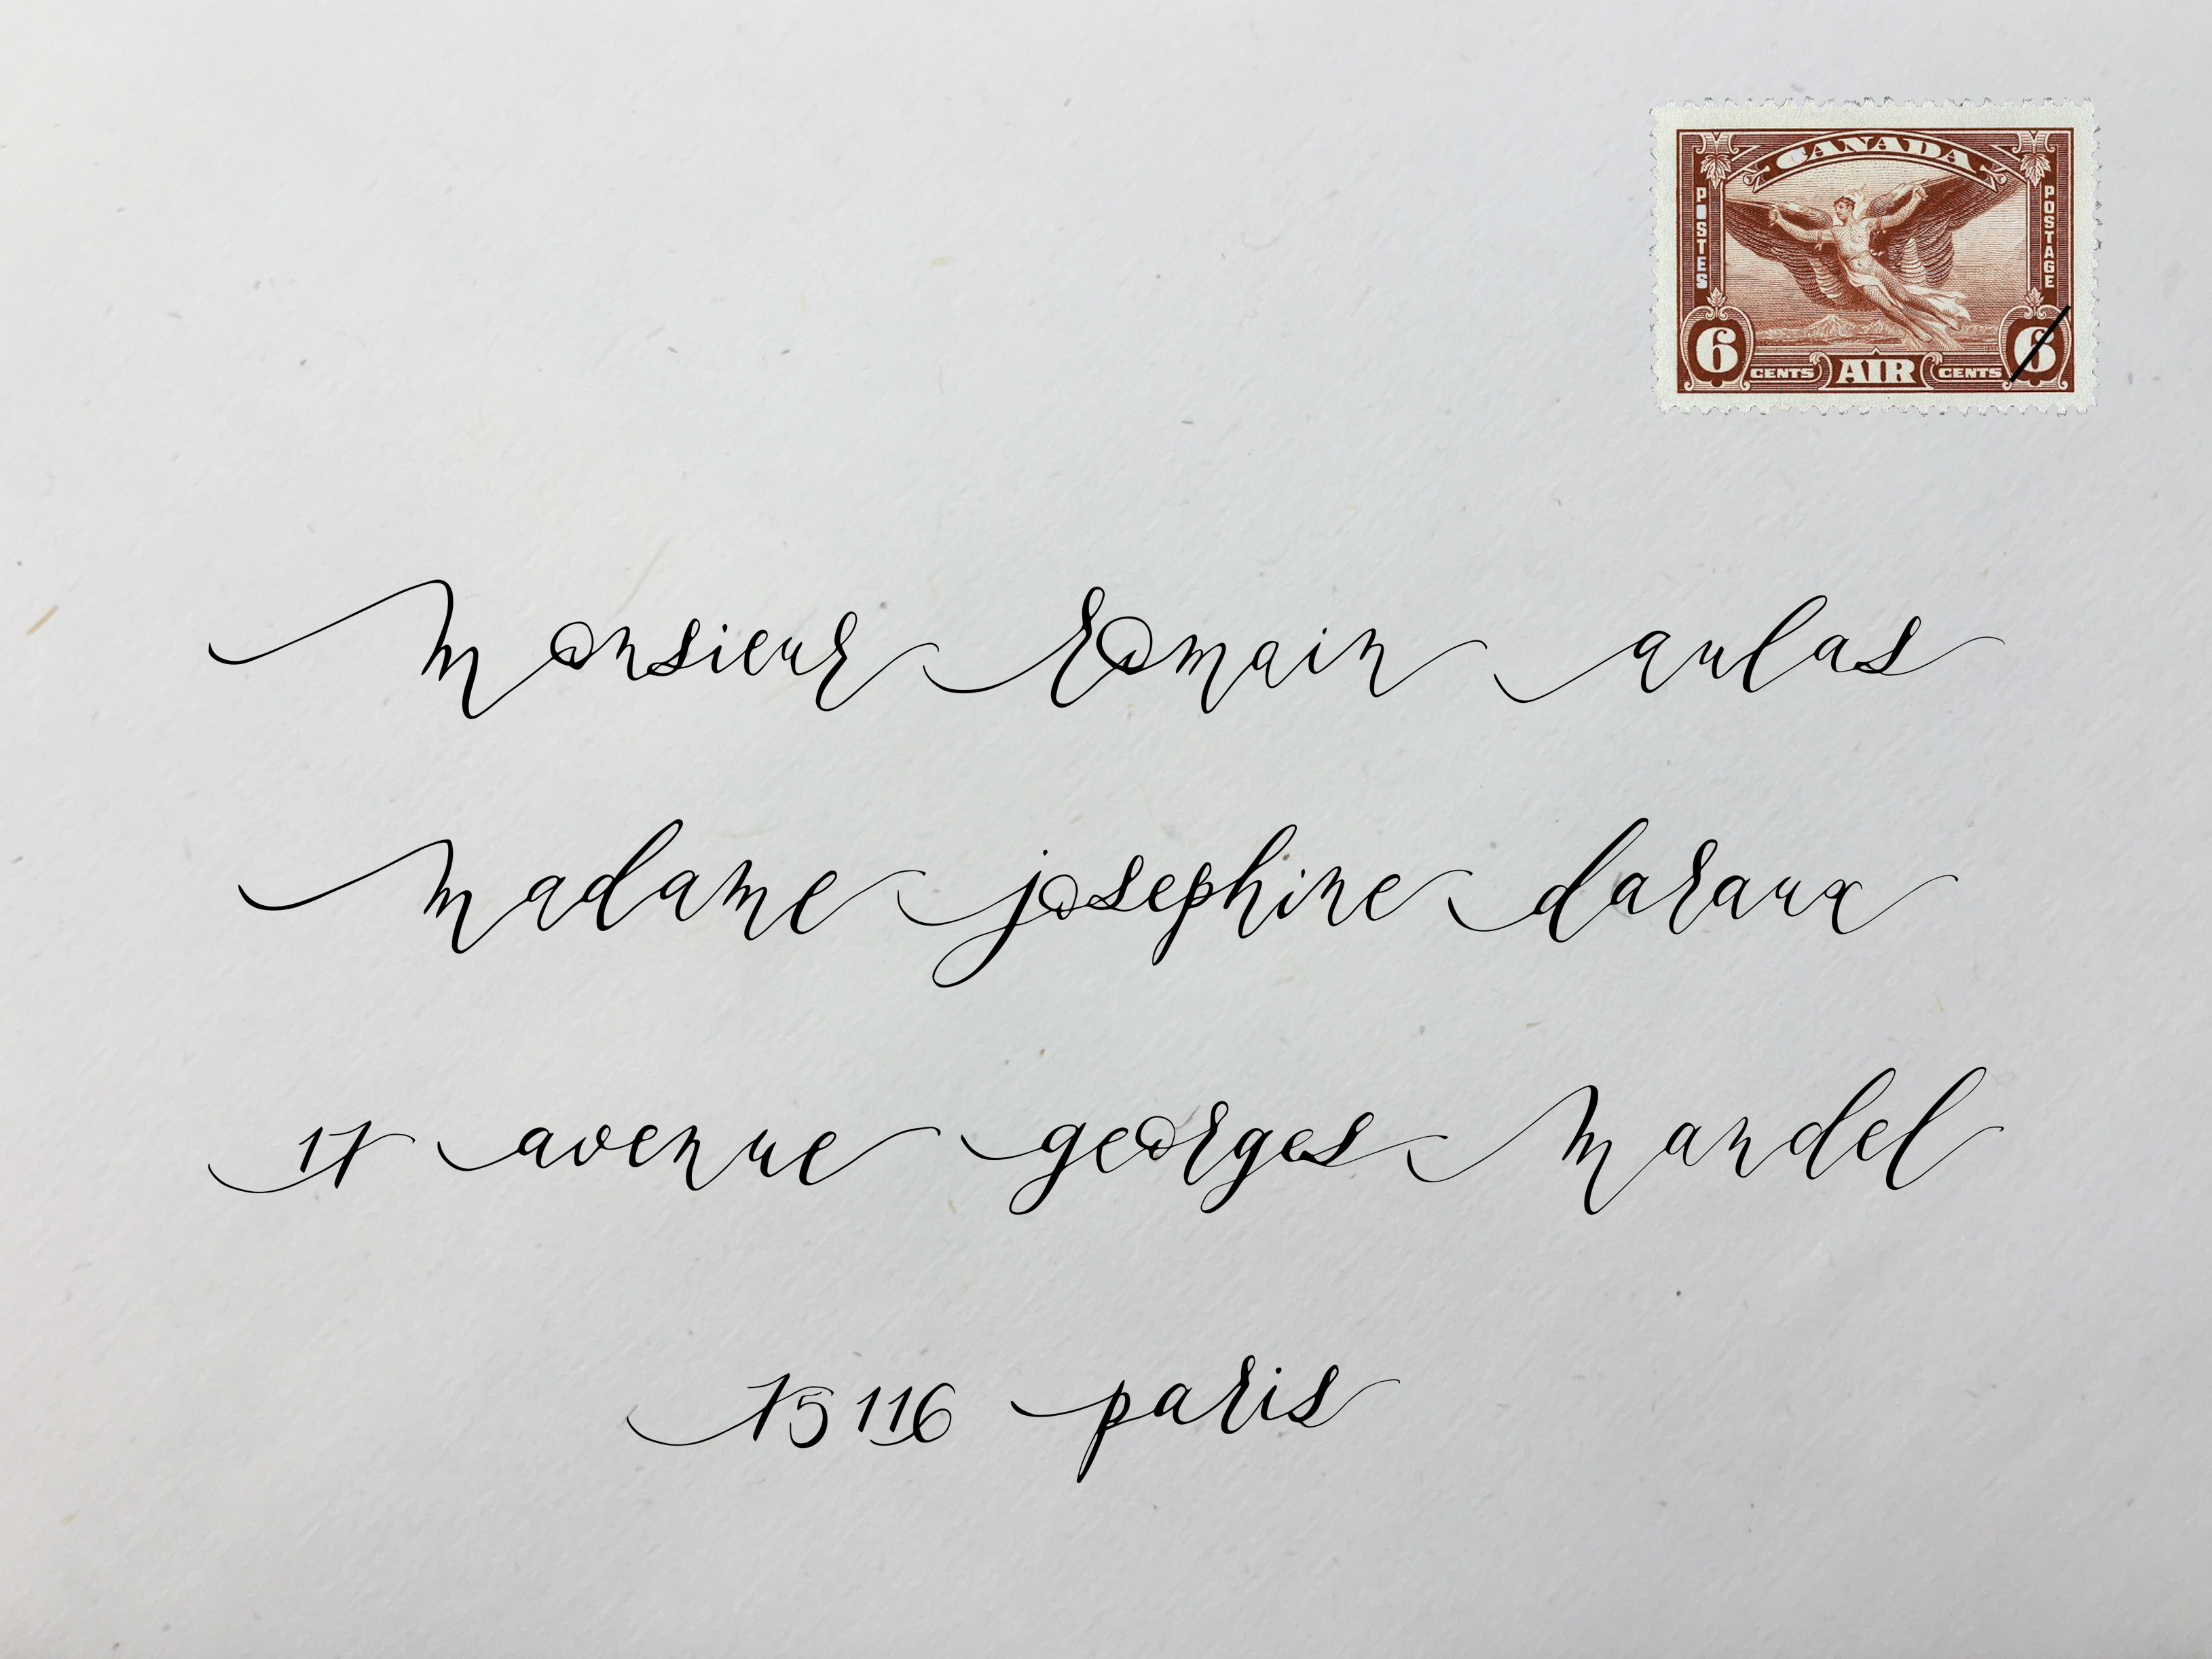 CANADA
POSTES
POSTAGE
6 CENTS AIR CENTS 6
monsieur romain aulas
madame josephine daraux
17 avenue georges mandel
75116 paris